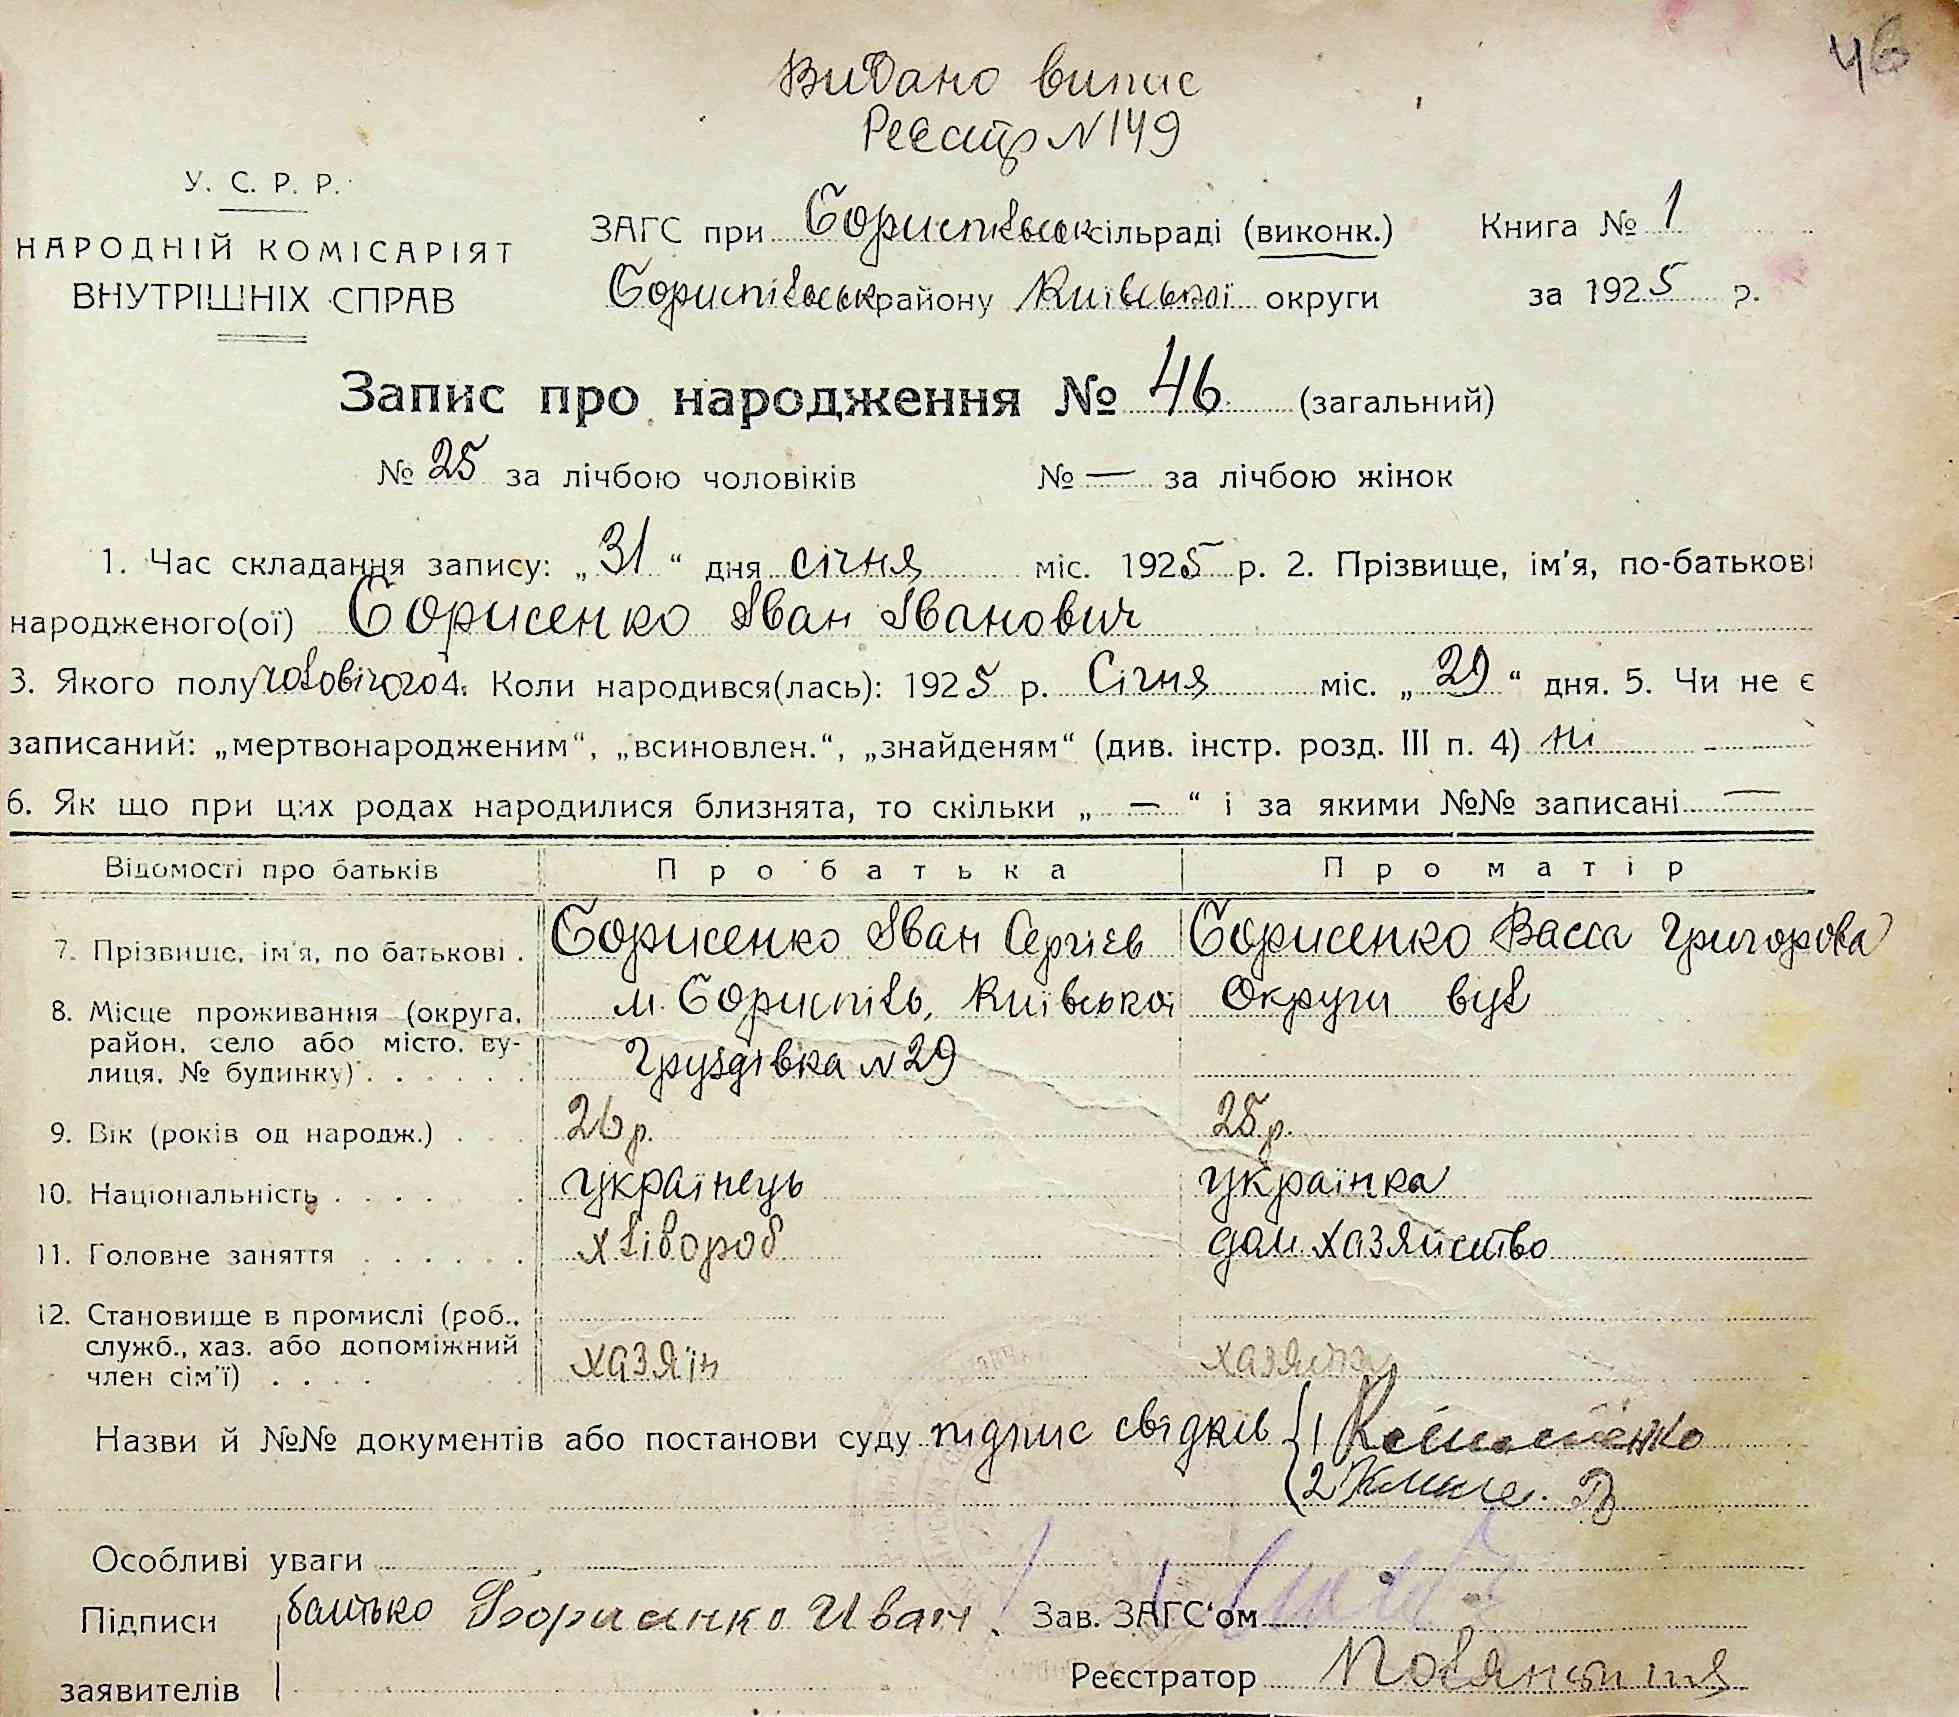 46
Видано випис
Реєстр N 149
У. С. Р. Р.
НАРОДНІЙ КОМІСАРІЯТ
ВНУТРІШНІХ СПРАВ
ЗАГС при Бориспільськ сільраді (виконк.) Книга № 1
Бориспільськ району Київської округи за 1925 р.
Запис про народження № 46 (загальний)
№ 25 за лічбою чоловіків № — за лічбою жінок
1. Час складання запису: „31“ дня січня міс. 1925 р. 2. Прізвище, ім'я, по-батькові
народженого(ої) Борисенко Іван Іванович
3. Якого полу чоловічого 4. Коли народився(лась): 1925 р. Січня міс. „29“ дня. 5. Чи не є
записаний: „мертвонародженим“, „всиновлен.“, „знайденям“ (див. інстр. розд. III п. 4) ні —
6. Як що при цих родах народилися близнята, то скільки „—“ і за якими №№ записані —
Відомості про батьків Про батька Про матір
7. Прізвище, ім'я, по батькові . Борисенко Іван Сергієв Борисенко Васса Григорова
8. Місце проживання (округа, район, село або місто, вулиця, № будинку) . . . . . . м. Бориспіль, Київської Округи вул
Груздівка N 29
9. Вік (років од народж.) . . . 26 р. 25 р.
10. Національність . . . . . . українець українка
11. Головне заняття . . . . . . хлібороб дом. хазяйство
12. Становище в промислі (роб., служб., хаз. або допоміжний член сім'ї) . . . . хазяїн хазяйка
Назви й №№ документів або постанови суду підпис свідків { 1
2
Особливі уваги
Підписи батько Борисенко Иван. Зав. ЗАГС'ом
заявителів Реєстратор